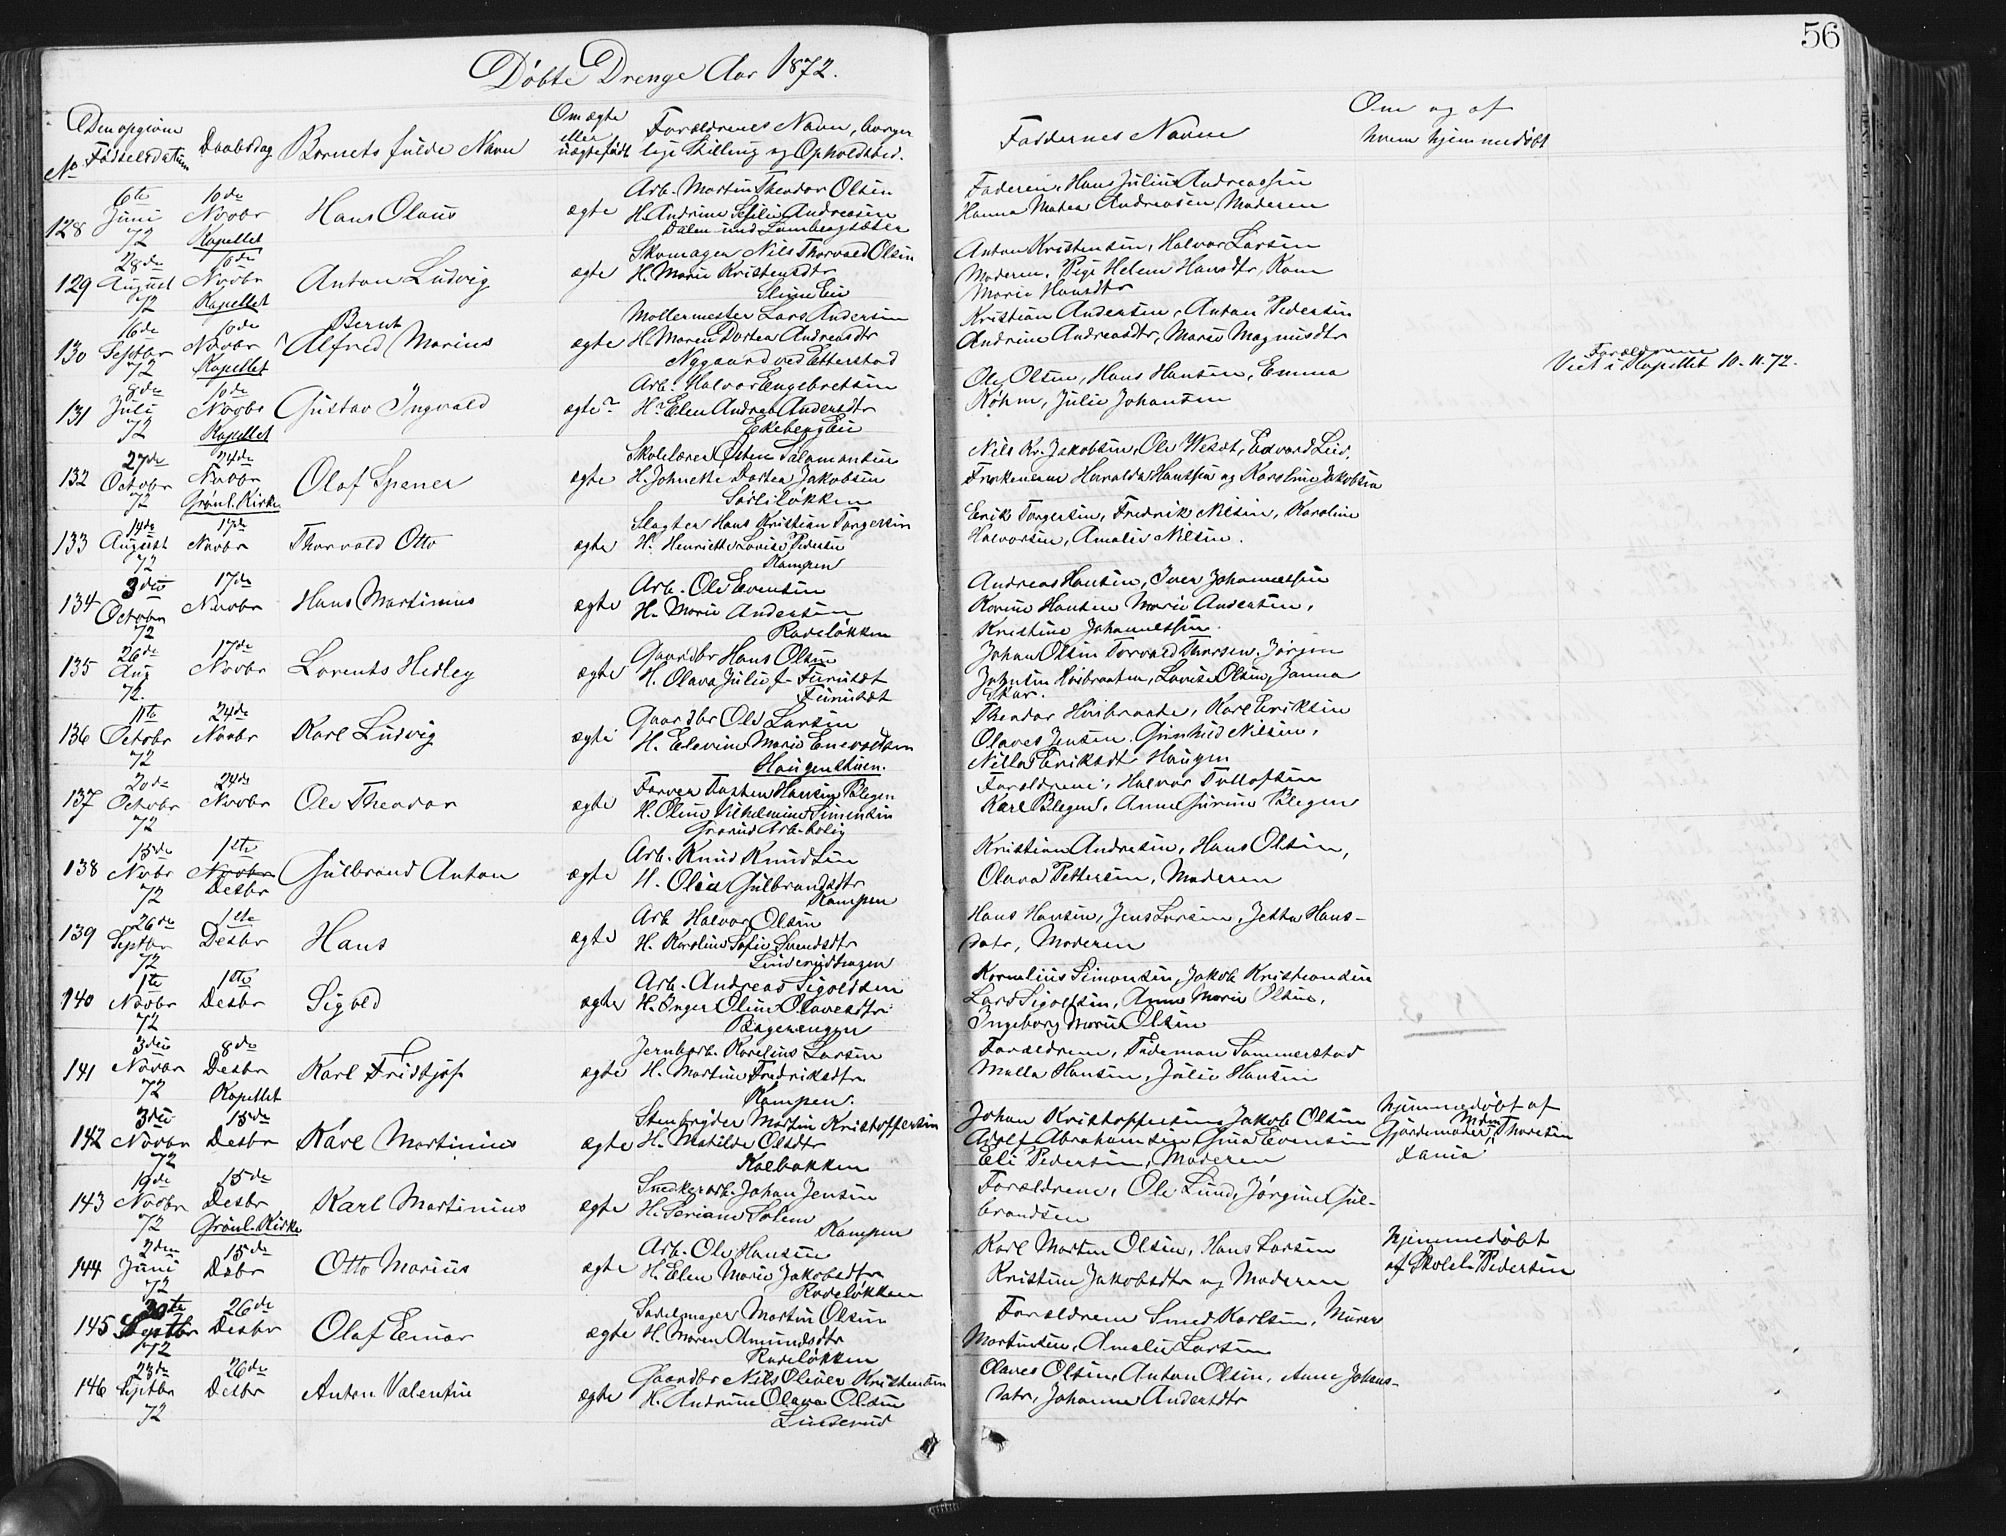 56
Døbte Drenge Aar 1872.
No
Den opgivne Fødselsdatum
Daabsdag
Barnets fulde Navn
Om ægte eller uægte født
Forældrenes Navn, borgerlige Stilling og Opholdsted.
Faddernes Navne
Om og af hvem hjemmedøbt
128
6te Juni 72
10de Novbr Kapellet
Hans Olaus
ægte
Arb. Martin Theodor Olsen
H. Andrine Andreasen
Faderen, Hans Julius Andreassen
Hanna Andreasen, Moderen
129
28de August 72
10de Novbr Kapellet
Anton Ludvig
ægte
Skomager Nils Thorvald Olsen
H. Marie Kristensdtr
Anton Kristensen, Halvor Larsen
Moderen, Pige Helene Hansdtr, Kone
Marie Hansdtr
130
16de Septbr 72
10de Novbr Kapellet
Bernt
Alfred Marius
ægte
Møllermester Lars Andersen
H. Maren Dortea Andreasdtr
Nygaard ved Etterstad
Kristian Andersen, Anton Pedersen
Andrine Andreasdtr, Maren Magnusdtr
131
8de Juli 72
10de Novbr Kapellet
Gustav Ingvald
ægte?
Arb. Halvor Engebretsen
H? Elen Andrea Andersdtr
Ekeberg Eie
Ole Olsen, Hans Hansen, Emma
Røhm, Julie Johansen
Forældrene
Viet i Kapellet 10-11-72.
132
27de October 72
24de Novbr Grønl. Kirke
Olaf Spener
ægte
Skolelærer Østen Salamonsen
H. Johnette Dortea Jakobsen
Sorliløkken
Nils Kr. Jakobsen, Ole Wesdt, Edvard Lie,
Frøkenerne Haralda Hanssen og Karoline Jakobsen
133
14de August 72
17de Novbr
Thorvald Otto
ægte
Slagter Hans Kristian Torgersen
H. Henriette Lovise Pedersen
Kampen
Erik Torgersen, Fredrik Nilsen, Karoline
Halvorsen, Amalie Nilsen.
134
3die Octobr 72
17de Novbr
Hans Martinius
ægte
Arb. Ole Evensen
H. Marie Andersen
Rodeløkken
Andreas Hansen, Iver Johannessen
Karine Hansen Marie Andersen,
Kristine Johannessen.
135
26de Aug 72.
17de Novbr
Lorents Hedley
ægte
Gaardbr Hans Olsen
H. Olava Julie f. Furusæt
Furusæt
Johan Olsen Torvald Thorsen, Jørgen
Johnsen Høibraaten, Lovise Olsen, Janna
Skar.
136
11te Octobr 72
24de Novbr
Karl Ludvig
ægte
Gaardbr Ole Larsen
H. Elevine Marie Enevoldsen
Haugenstuen.
Theodor Høibraate, Karl Eriksen
Olaves Jensen, Gunhild Nilsen,
Eriksdt Haugen
137
20de Octobr 72
24de Novbr
Ole Theodor
ægte
Farver Torsten Hansen Blegen
H. Oline Vilhelmine Simensen
Grorud Arb.bolig
Forældrene, Halvor Tollefsen
Karl Blegen, Anne Gurine Blegen
138
15de Novbr 72
1ste Novbr Desbr
Gulbrand Anton
ægte
Arb. Knud Knudsen
H. Olea Gulbrandsdtr
Kampen
Kristian Andresen, Hans Olsen,
Olava Pettersen, Moderen
139
26de Septbr 72
1ste Desbr
Hans
ægte
Arb Halvor Olsen
H. Karoline Sofie Svendsdtr
Linderudhagen
Hans Hansen, Jens Larsen, Jetta Hans-
datr, Moderen
140
1ste Novbr 72
1ste Desbr
Sigvald
ægte
Arb. Andreas Sigvaldsen
H. Inger Oline Olavesdtr
Bagerengen
Kornelius Simonsen, Jakob Kristiansen
Lars Sigvaldsen, Anne Marie Olsen,
Ingeborg Marie Olsen
141
3die Novbr 72
8de Desbr Kapellet
Karl Fridtjof
ægte
Jernbarb. Karelius Larsen
H. Martine Fredriksdtr
Kampen.
Forældrene, Tideman Sommerstad
Malla Hansen, Julie Hansen
142
3die Novbr 72
15de Desbr
Kárl Martinius
ægte
Stenbryder Martin Kristoffersen
H. Matilde Olsdtr
Kalbakken
Johan Kristoffersen, Jakob Olsen
Adolf Abrahamsen, Gina Evensen
Eli Pedersen, Moderen
hjemmedøbt af
Gjordemoder Mdm Thoresen
143
19de Novbr 72
15de Desbr Grønl. Kirke
Karl Martinius
ægte
Snedkerarb. Johan Jensen
H. Seriane Solem
Kampen
Forældrene, Ole Lund, Jørgine Gul-
brandsen
144
2den Juni 72
15de Dsbr
Otto Marius
ægte
Arb. Ole Hansen
H. Elen Marie Jakobsdtr
Rodeløkken
Karl Morten Olsen, Hans Larsen
Kristine Jakobsdtr og Moderen
hjemmedøbt
af Skolel. Pedersen
145
30te Septbr 72
26de Desbr
Olaf Einar
ægte
Sadelmager Martin Olsen
H. Maren Amundsdtr
Rodeløkken
Forældrene Smed Karlsen, Murer
Martinsen, Amalie Larsen
146
23de Septbr 72
26de Desbr
Anton Valentin
ægte
Gaardbr Nils Oliver Kristensen
H. Andrine Olava Olsen
Linderud
Olaves Olsen, Anton Olsen, Anne Johans-
datr, Johanne Andersdtr